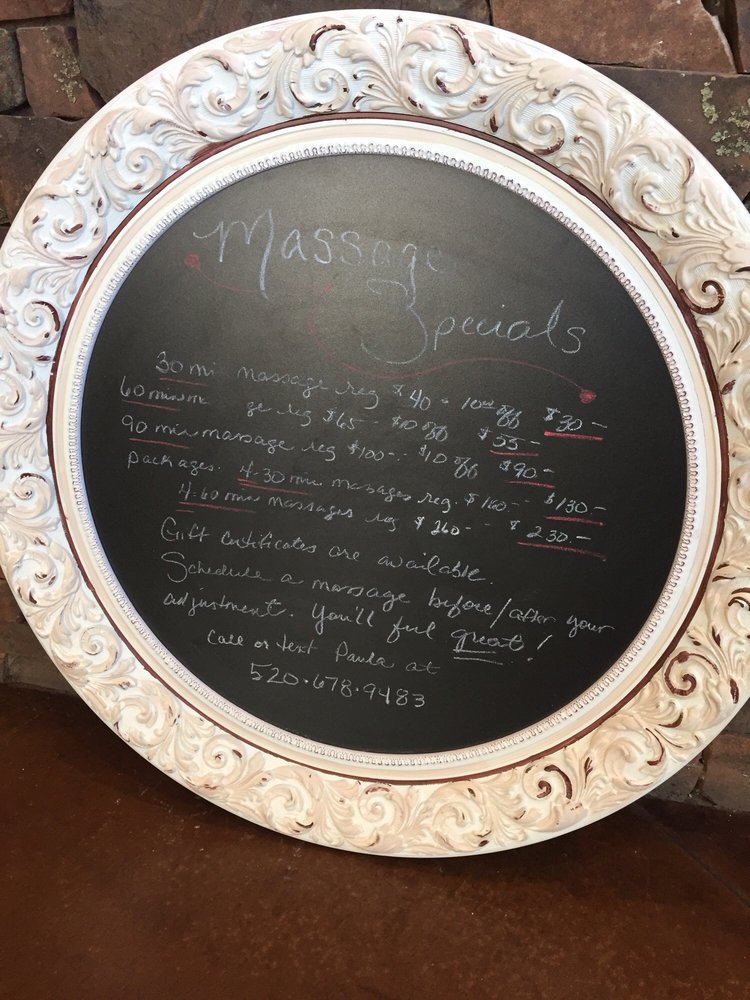 Massage
Specials
30 mi massage reg $40 - 10 off $30-
60 min m ge reg $65-- $10 off $55-
90 min massage reg $100-- $10 off $90-
Packages. 4-30 min massages reg. $160-- $130-
4-60 min massages reg $260-- $230.-
Gift Certificates are available.
Schedule a massage before/after your
adjustment. You'll feel great!
Call or text Paula at
520.678.9483